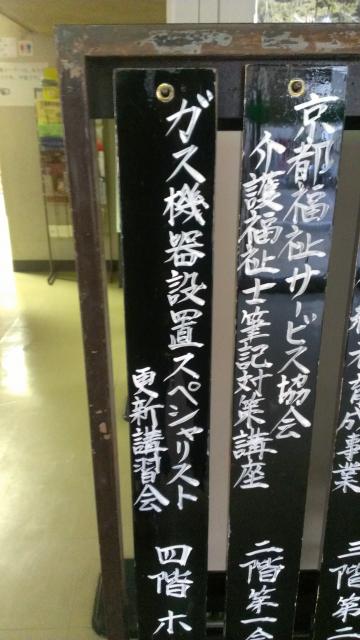 京都福祉サービス協会
介護福祉士筆記対策講座
二階第一会
ガス機器設置スペシャリスト
更新講習会
四階 ホ